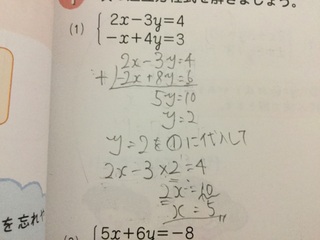 (1) { 2x-3y=4
-x+4y=3
2x-3y=4
+) -2x+8y=6
5y=10
y=2
y=2を①に代入して
2x-3×2=4
2x=10
x=5
を忘れ
{ 5x+6y=-8